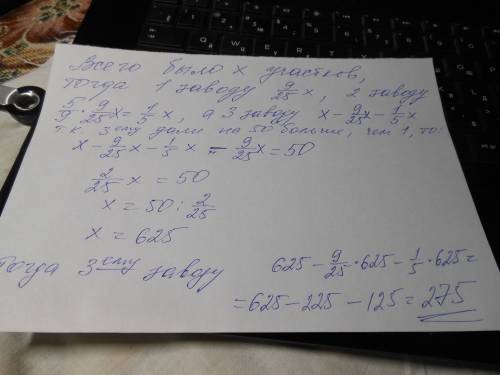 Всего было x участков,
тогда 1 заводу 9/25 x, 2 заводу
5/9 · 9/25 x = 1/5 x, а 3 заводу x - 9/25 x - 1/5 x
т.к. 3ому дали на 50 больше, чем 1, то:
x - 9/25 x - 1/5 x - 9/25 x = 50
2/25 x = 50
x = 50 : 2/25
x = 625
Тогда 3ему заводу 625 - 9/25 · 625 - 1/5 · 625 =
= 625 - 225 - 125 = 275